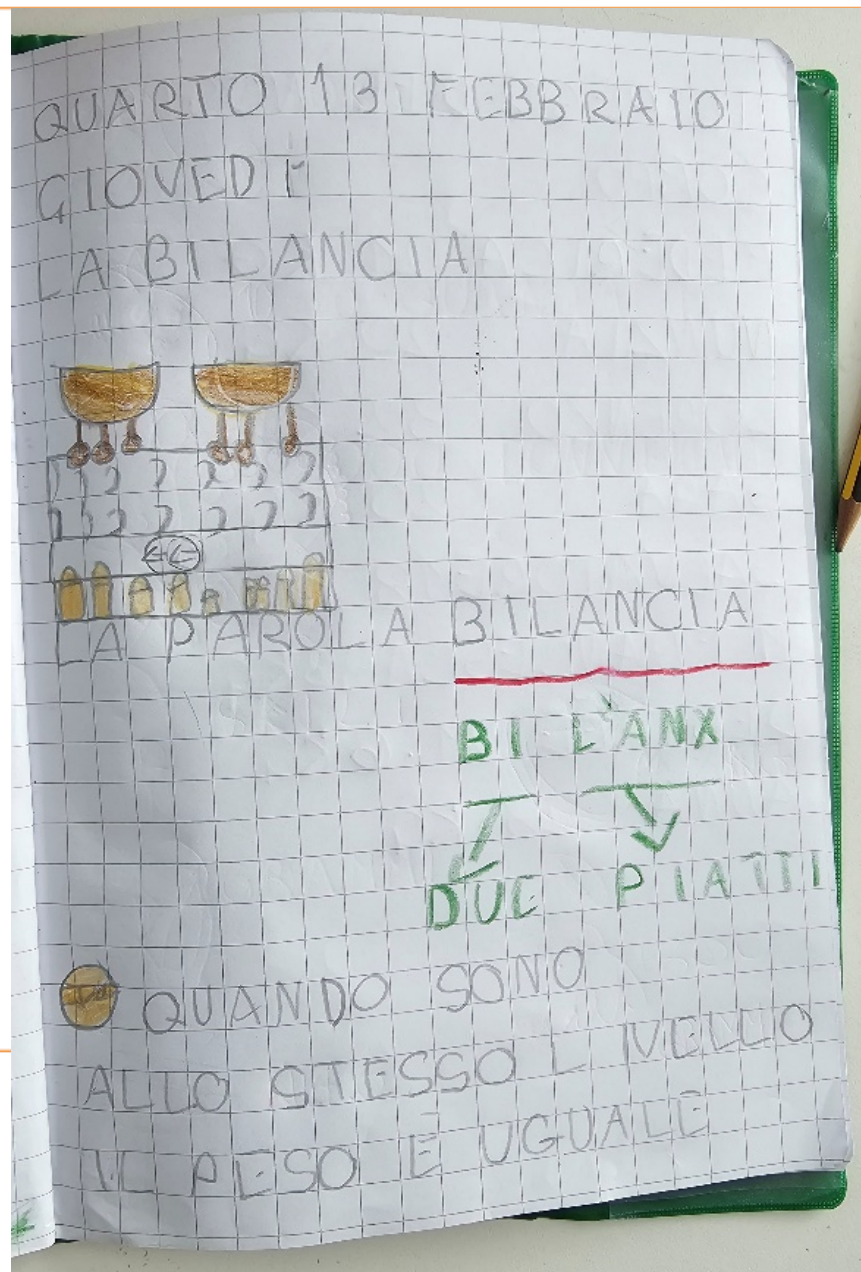 QUARTO 13 FEBBRAIO
GIOVEDÌ
LA BILANCIA
LA PAROLA BILANCIA
BI L'ANX
DUE PIATTI
QUANDO SONO
ALLO STESSO LIVELLO
IL PESO È UGUALE